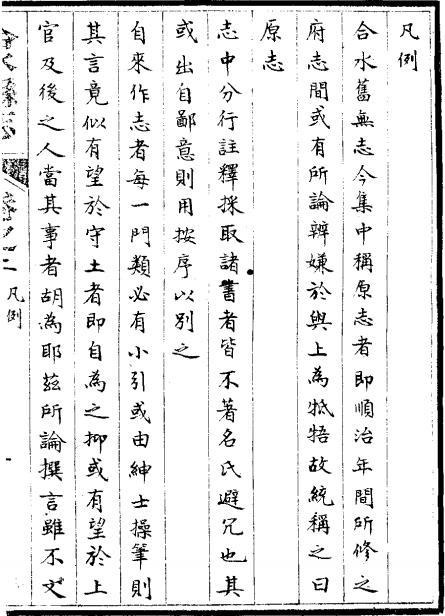 凡例
合水舊無志今集中稱原志者即順治年間所修之
府志間或有所論辨嫌於與上為牴牾故統稱之曰
原志
志中分行註釋採取諸書者皆不著名氏避冗也其
或出自鄙意則用按序以別之
自來作志者每一門類必有小引或由紳士操筆則
其言竟似有望於守土者即自為之抑或有望於上
官及後之人當其事者胡為耶茲所論撰言雖不文
凡例